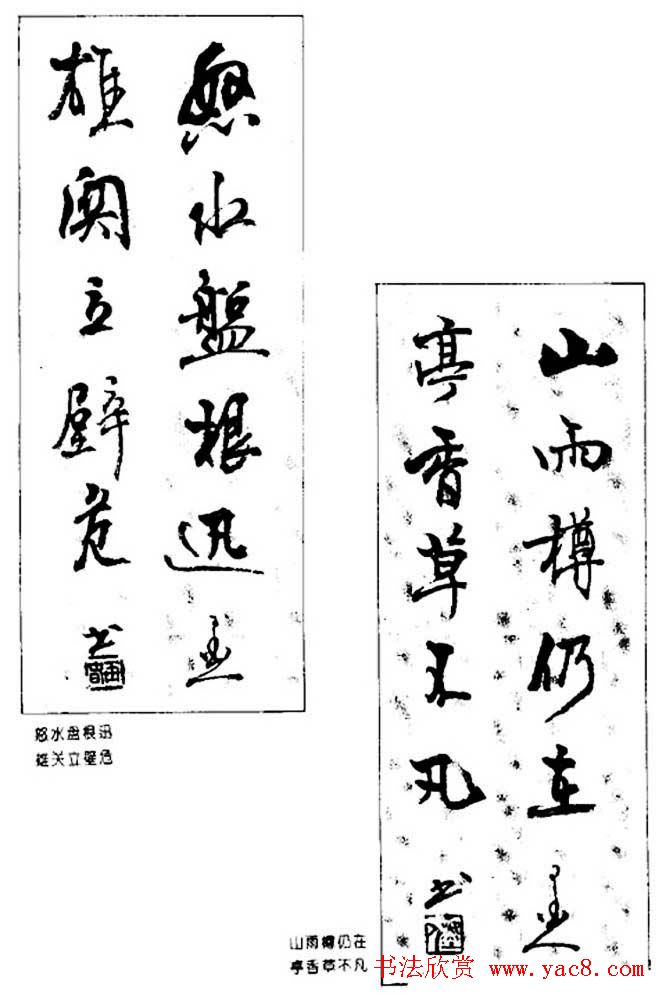 怒水盤根迅
雄関立壁危 书
怒水盘根迅
雄关立壁危
山雨樽仍在
亭香草不凡 书
山雨樽仍在
亭香草不凡
书法欣赏 www.yac8.com